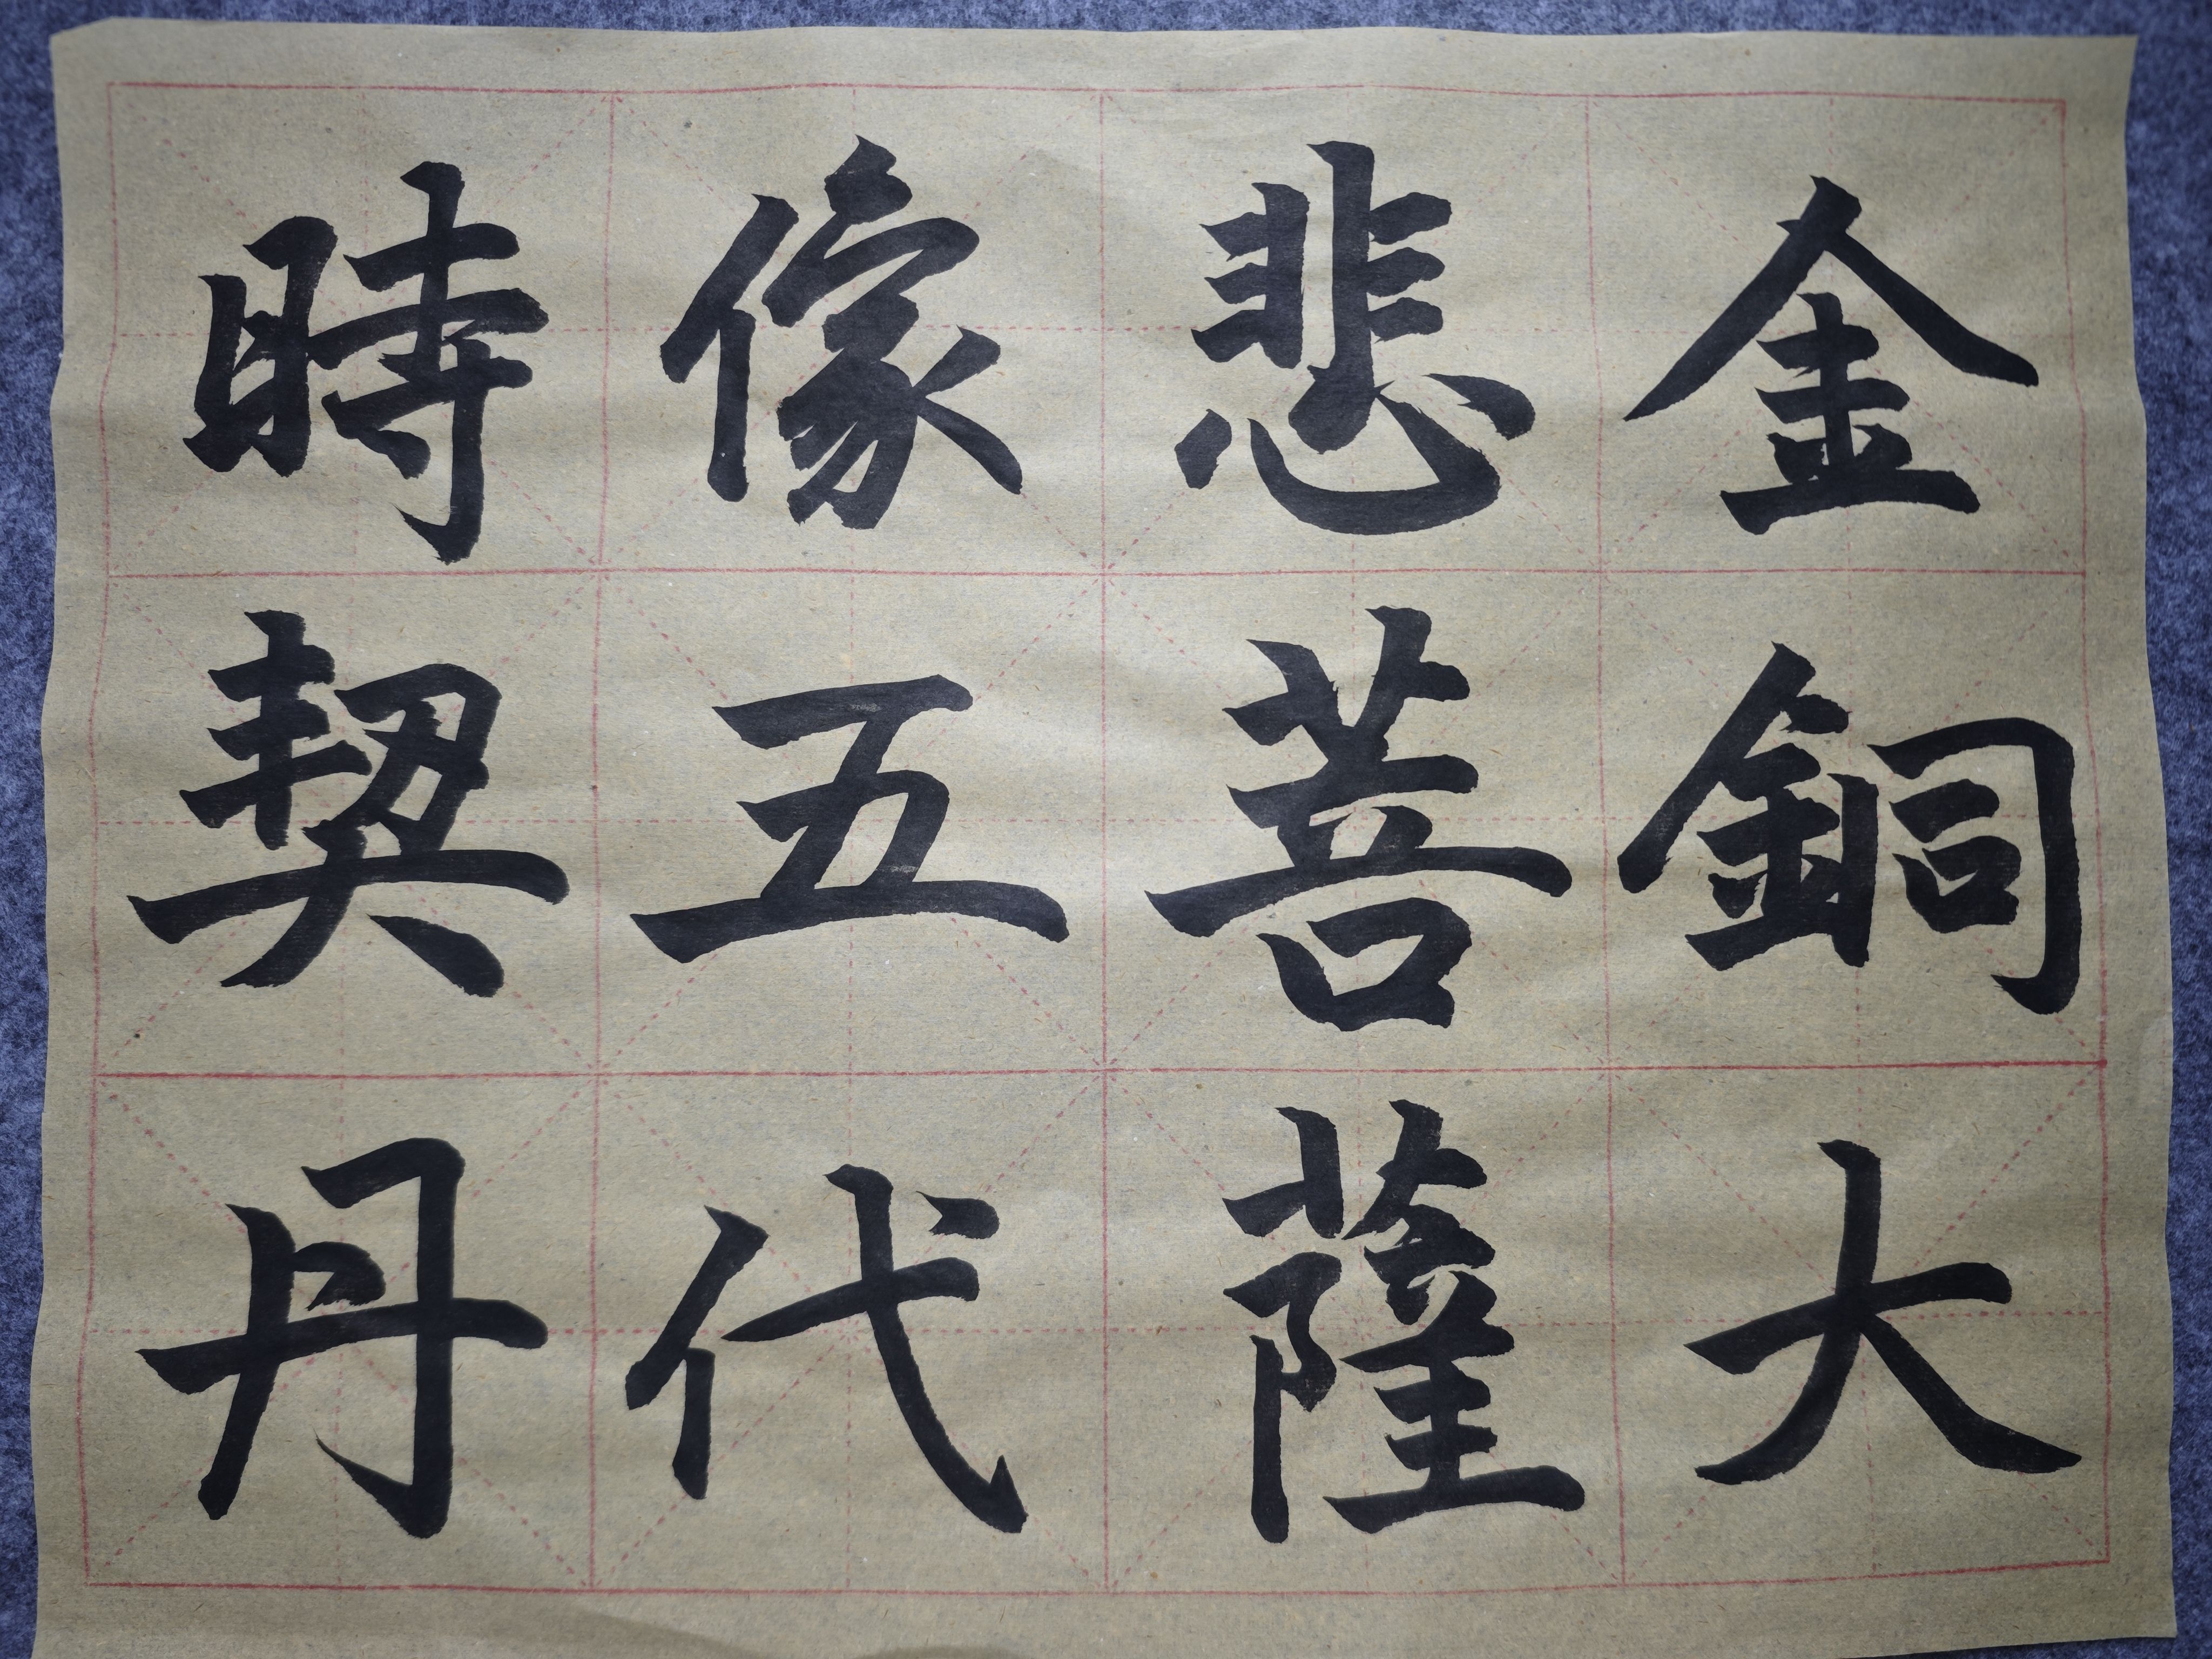 金銅大
悲菩薩
像五代
時契丹